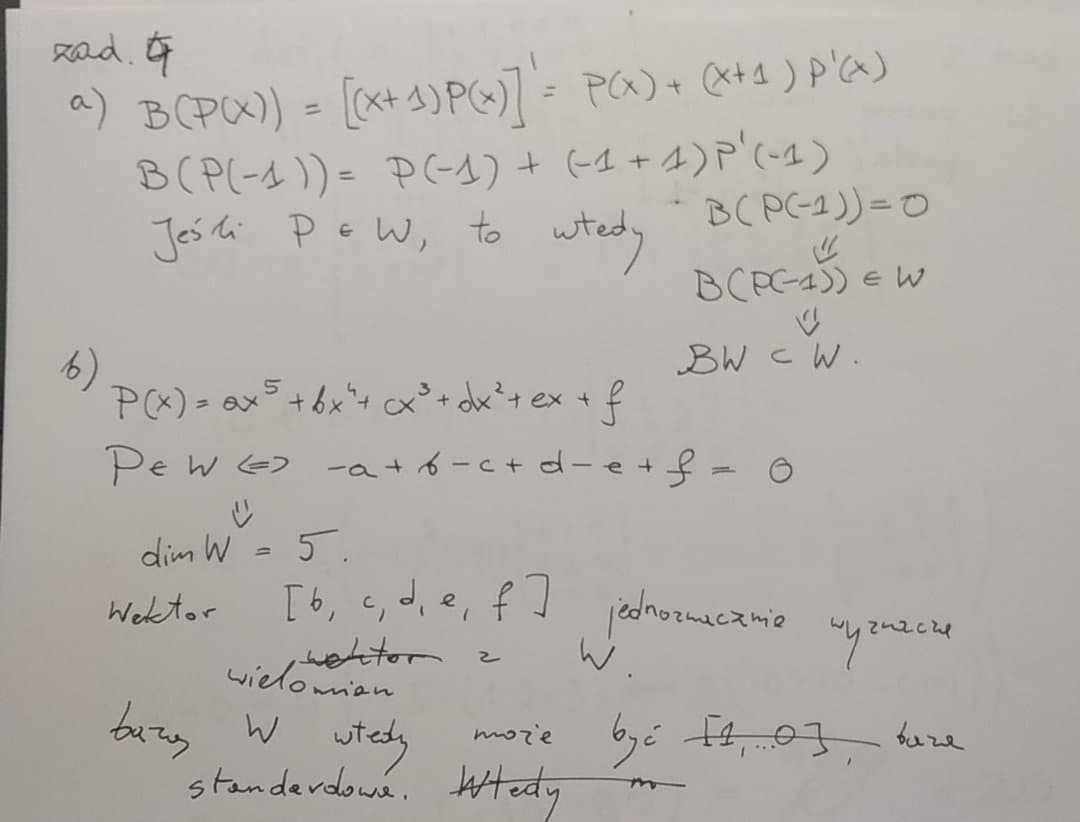 zad. 4
a) B(P(x)) = [(x+1)P(x)]' = P(x) + (x+1)P'(x)
B(P(-1)) = P(-1) + (-1+1)P'(-1)
Jeśli P ∈ W, to wtedy B(P(-1)) = 0
⇓
B(P(-1)) ∈ W
⇓
BW ⊂ W.
b)
P(x) = ax⁵ + bx⁴ + cx³ + dx² + ex + f
P ∈ W <=> -a + b - c + d - e + f = 0
⇓
dim W = 5.
Wektor [b, c, d, e, f] jednoznacznie wyznacza
wektor z W.
wielomian
bazą W wtedy może być [1,...0], baza
standardowa. Wtedy m